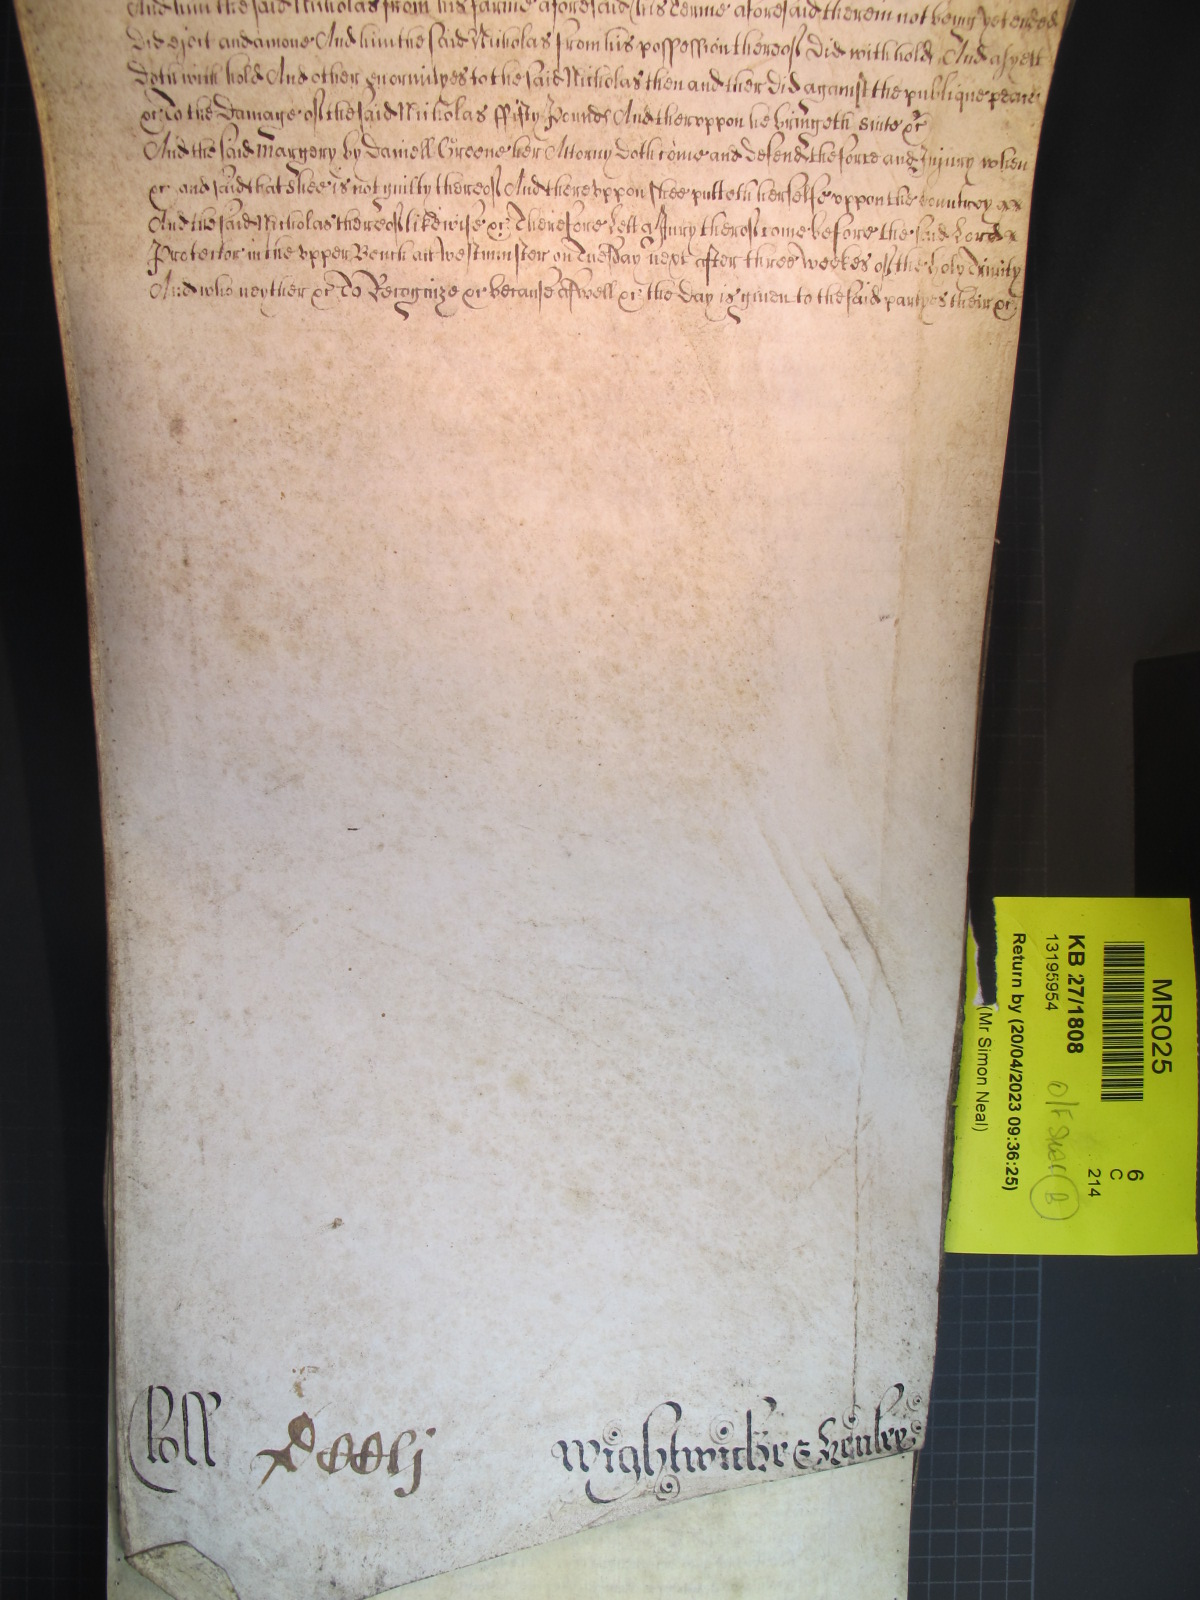 And him the said Nicholas from his farme aforesaid his terme aforesaid therein not being yet ended
Did eject and amove And him the said Nicholas from his possession thereof Did withhold And as yett
Doth with hold And other enormityes to the said Nicholas then and ther did against the publique peace
&c To the Damage of the said Nicholas ffifty Pounds And thervppon he bringeth suite &c
And the said Margery by Daniell Greene her Attorny Doth come and defend the force and Injury when
&c and said that shee is not guilty thereof And there vppon shee putteth herselfe vppon the Countrey &c
And the said Nicholas thereof likewise &c Therefore Lett a Jury therof come before the said Lord
Protector in the vpper Bench att Westminster on Tuesday next after three weekes of the holy Trinity
And who neyther &c To Recognize &c because aswell &c the Day is given to the said partyes their &c
Roll
Wightwicke & Henley
MR025
6
C
214
KB 27/1808
13195954
O/F Shelf B
Return by (20/04/2023 09:36:25)
(Mr Simon Neal)